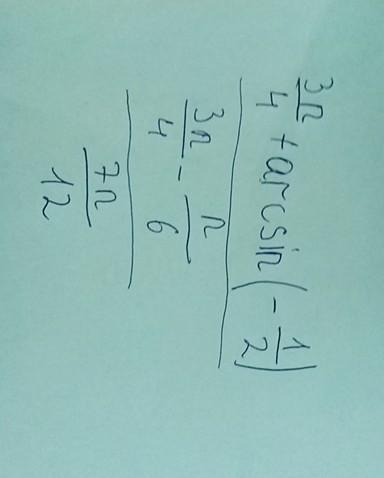 3π/4 + arcsin(-1/2)
3π/4 - π/6
7π/12